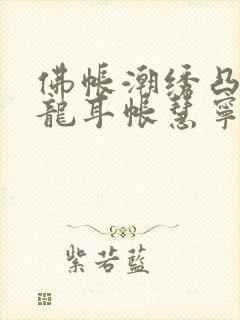 佛帐潮绣凸
龍耳帐慧寧
紫若藍